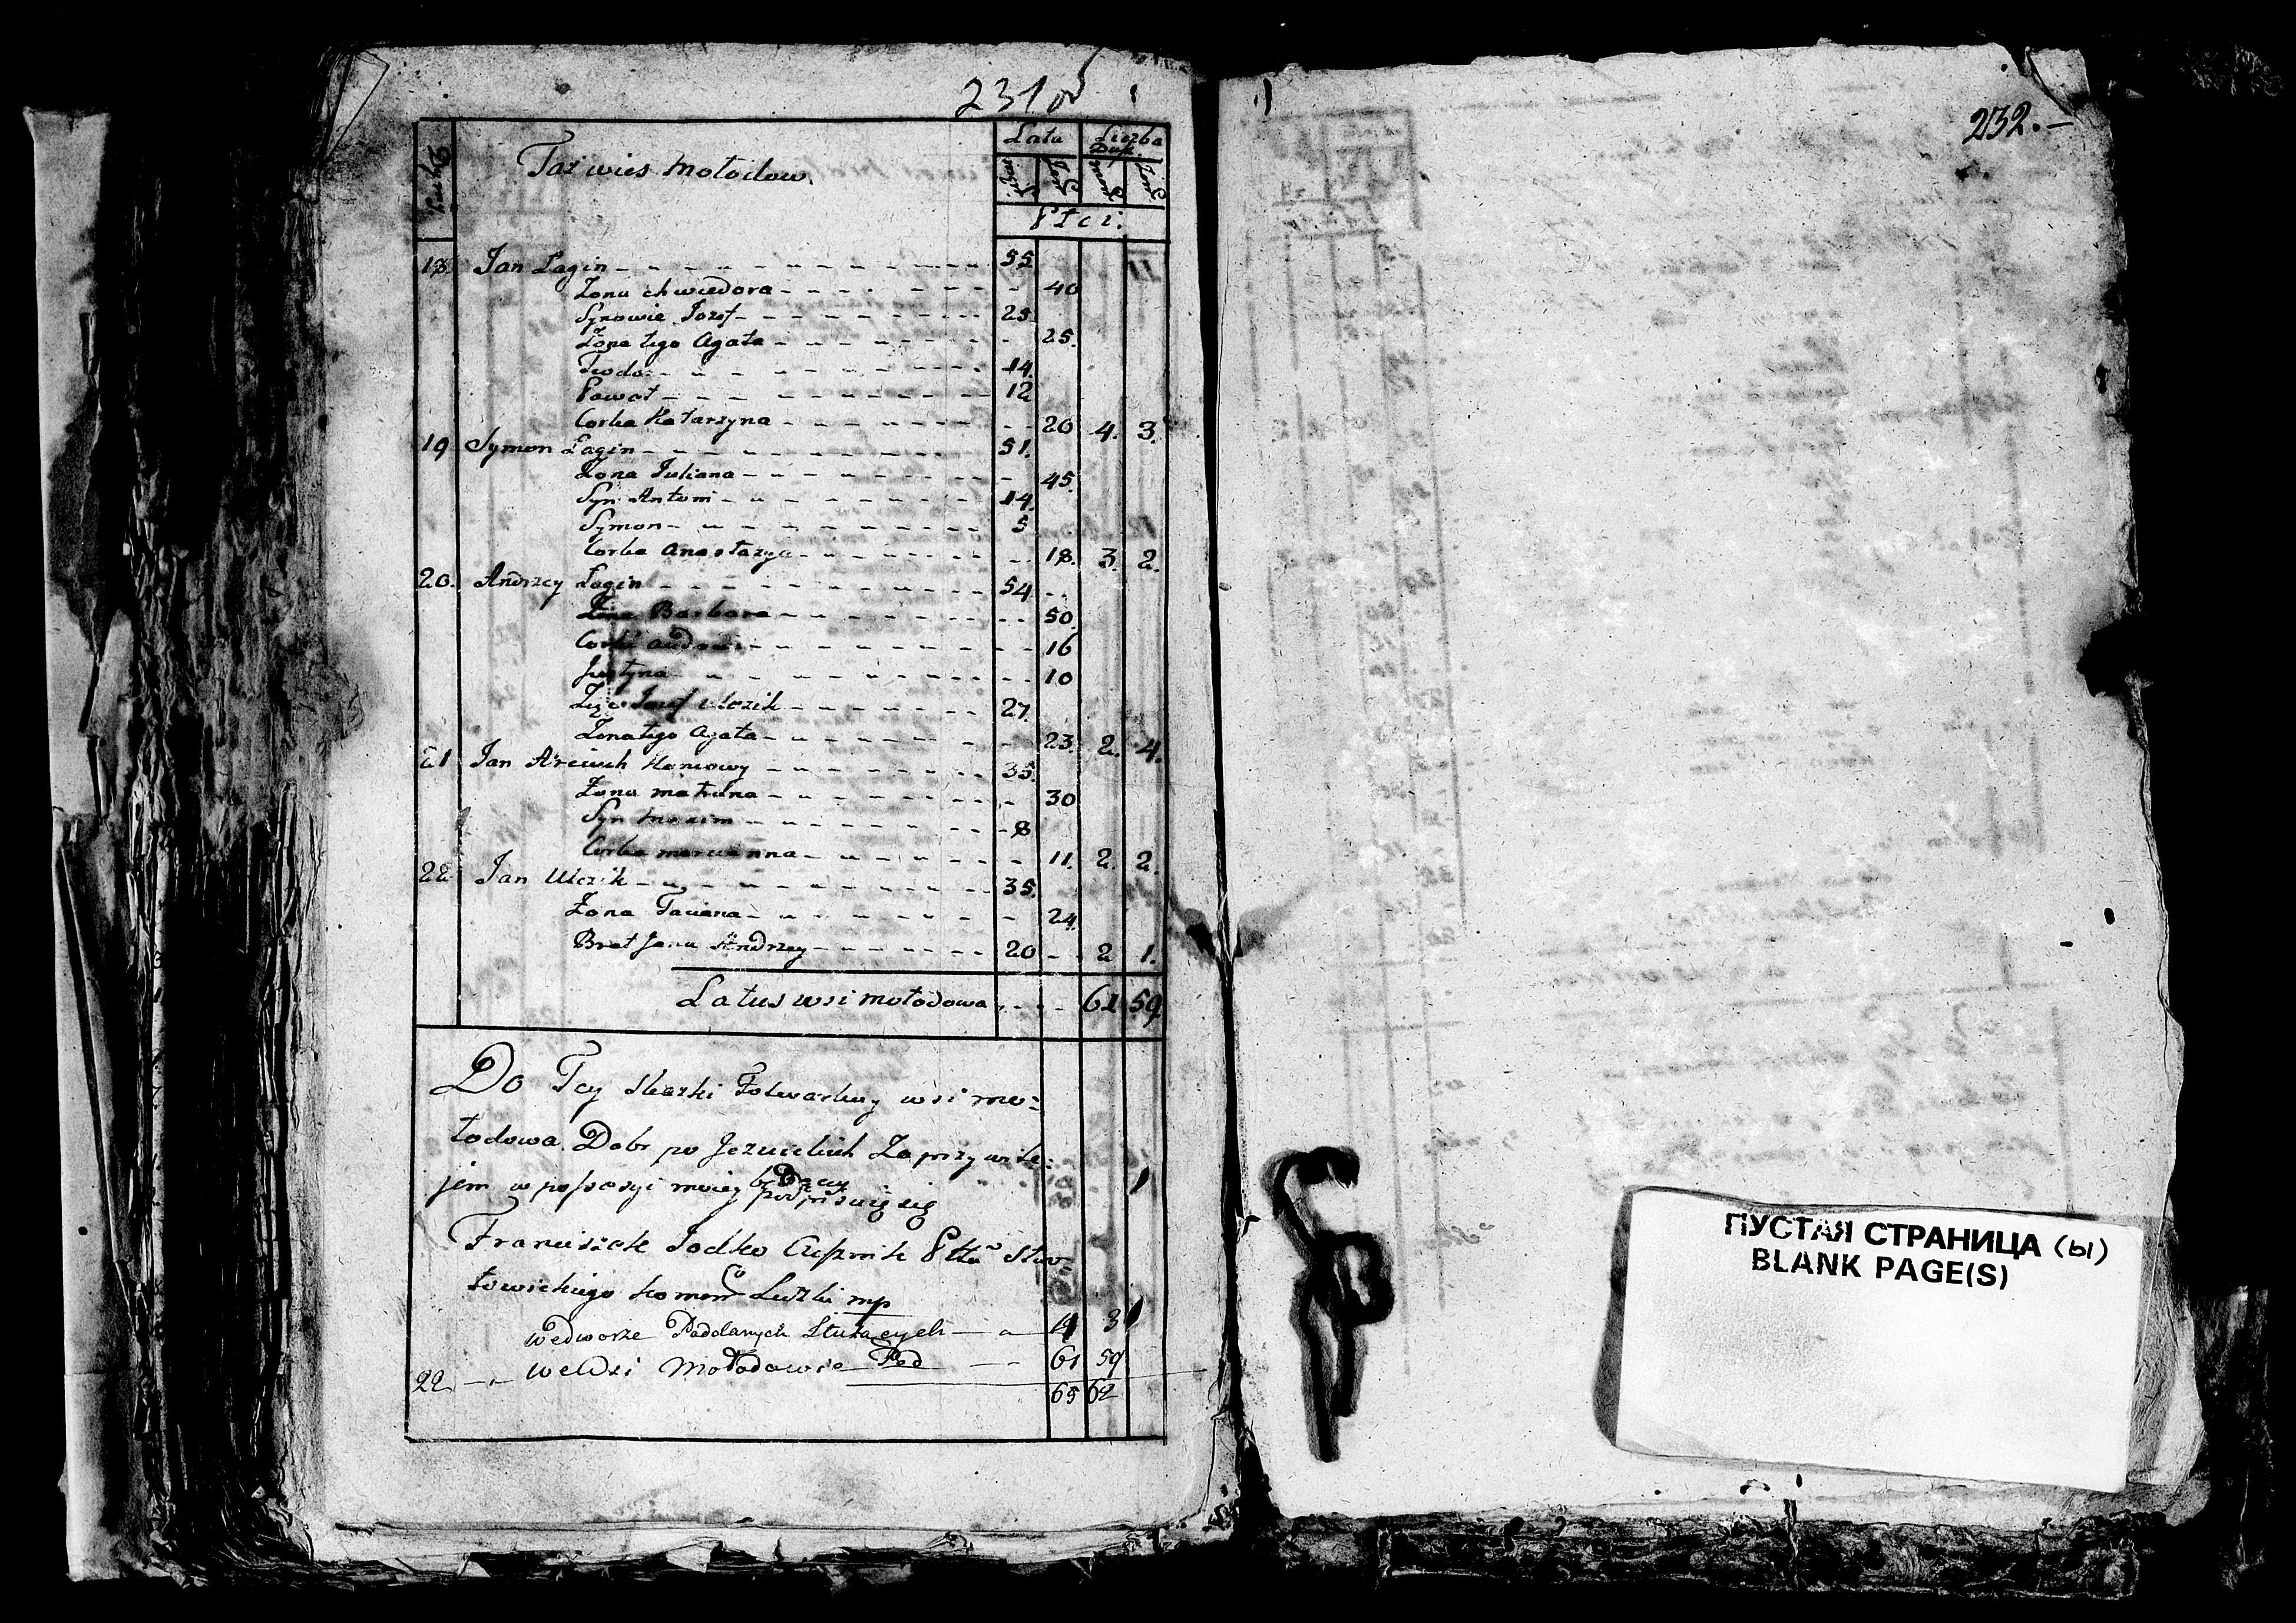 231 об
Dymy
Taż wieś Mołodow.
Lata
Liczba Dusz.
Płci.
18. Jan Łagin 55
Żona Chwiedora 40
Synowie Jozef 25
Żona tego Agata 25.
Teodor 14.
Paweł 12
Corka Katarzyna 20 4. 3.
19 Symon Łagin 51.
Żona Juliana 45.
Syn Antoni 14.
Symon 5
Corka Anastazya 18. 3. 2.
20. Andrzey Łagin 54
Żona Barbara 50.
Corka 16
Justyna 10
Jozef 27.
Żona tego Agata 23. 2. 4.
21 Jan 35.
Żona Matruna 30
Syn Maxim 8
Corka Maruanna 11. 2. 2.
22. Jan Ulczik 35.
Żona Taciana 24.
Brat Jana Andrzey 20 2 1.
Latus wsi Mołodowa 61 59
Do Tey Skazki Folwarkuy wsi Mo=
łodowa Dobr po Jezuickich Za przywile=
jem w possesyi moiey będący
podpisuię się
Franciszek Jodko
mp
Wedworze Poddanych Słuzących 14 3
22 weWsi Mołodowie 61 59
65 62
232.-
ПУСТАЯ СТРАНИЦА (Ы)
BLANK PAGE(S)